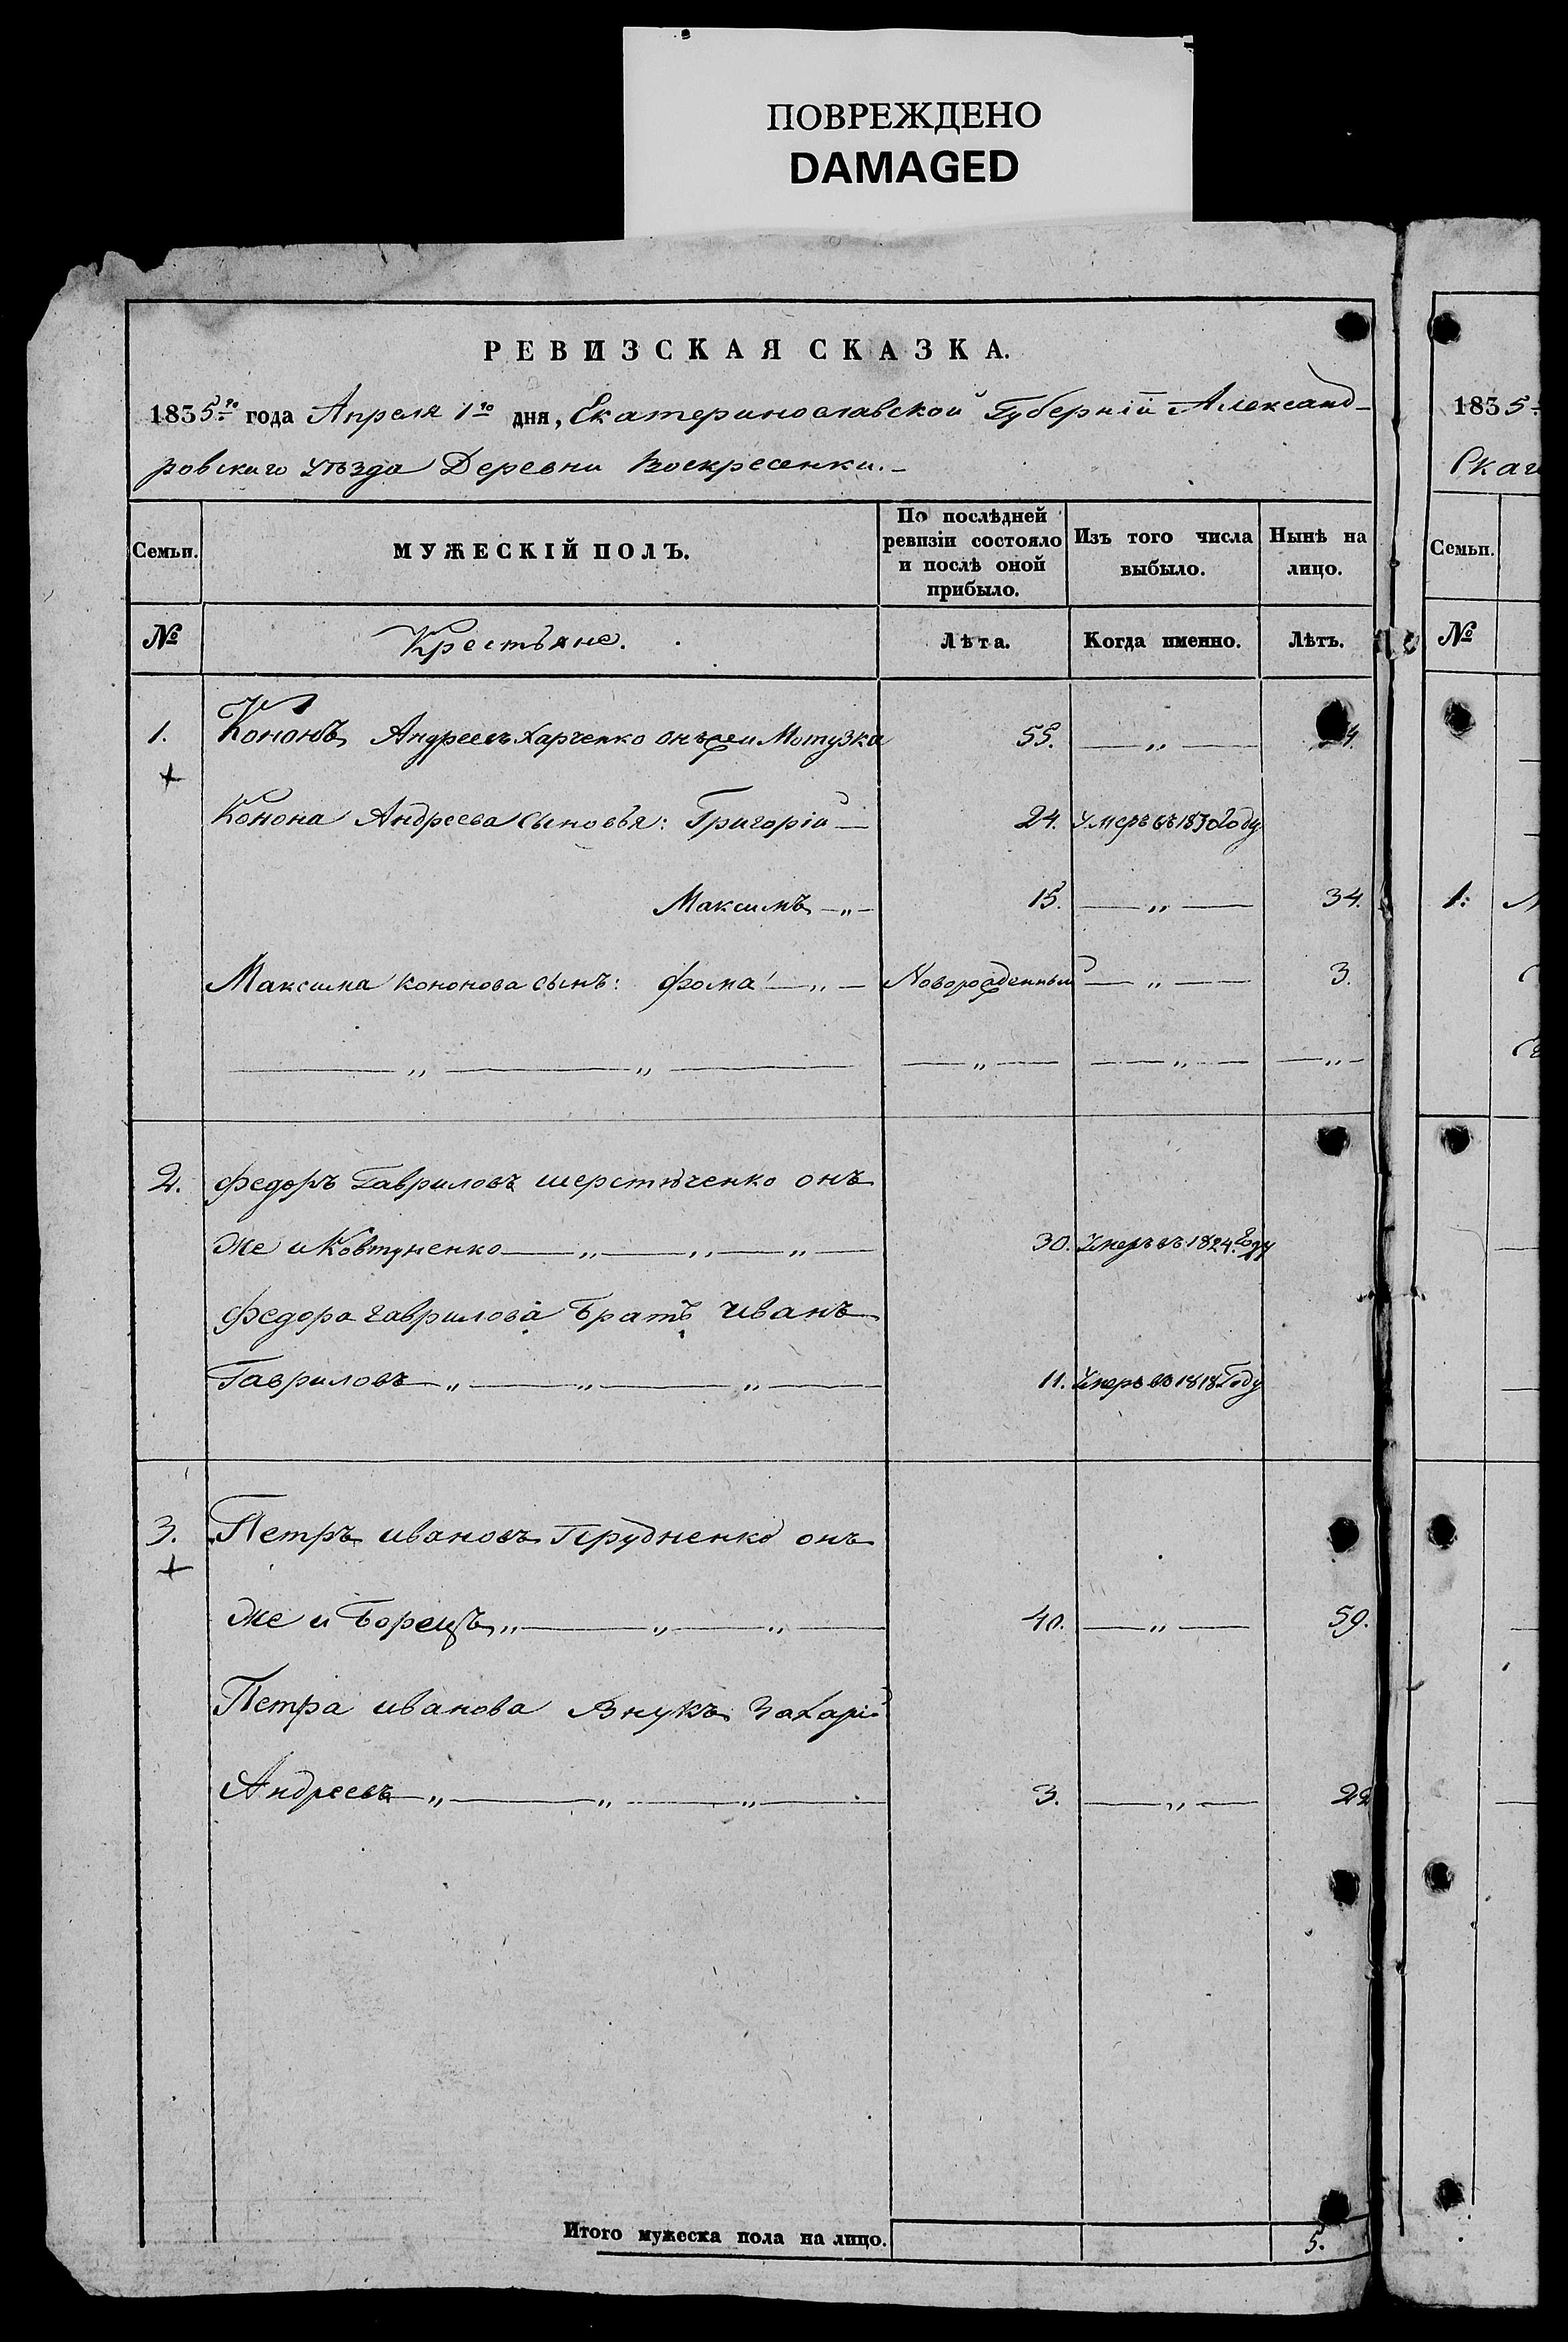 ПОВРЕЖДЕНО
DAMAGED
РЕВИЗСКАЯ СКАЗКА.
1835го года Апреля 1го дня, Екатеринославской Губернiи Александ-
ровскаго уѣзда Деревни Воскресенки.
Семьи. МУЖЕСКІЙ ПОЛЪ. По послѣдней ревизіи состояло и послѣ оной прибыло. Изъ того числа выбыло. Нынѣ на лицо.
№ Крестьяне. Лѣта. Когда именно. Лѣтъ.
1. Кононъ Андреевъ Харченко онъ же и Мотузка 55. —„— 4.
Конона Андреева сыновья: Григорій — 24. Умеръ въ 1830 Году
Максимъ —„— 15. —„— 34.
Максима Кононова сынъ: Фома —„— Новорожденный —„— 3.
2. Федоръ Гавриловъ Шерстюченко онъ
же и Ковтуненко —„—„—„— 30. Умеръ въ 1824. Году
Федора Гаврилова Братъ Иванъ
Гавриловъ —„—„—„— 11. Умеръ въ 1818 Году
3. Петръ Ивановъ Прудненко онъ
же и Борецъ „—„—„— 40. —„— 59.
Петра Иванова Внукъ Захарій
Андреевъ —„—„—„— 3. —„— 22
Итого мужеска пола на лицо. 5.
1835
Скаго
Семьи.
№
1: